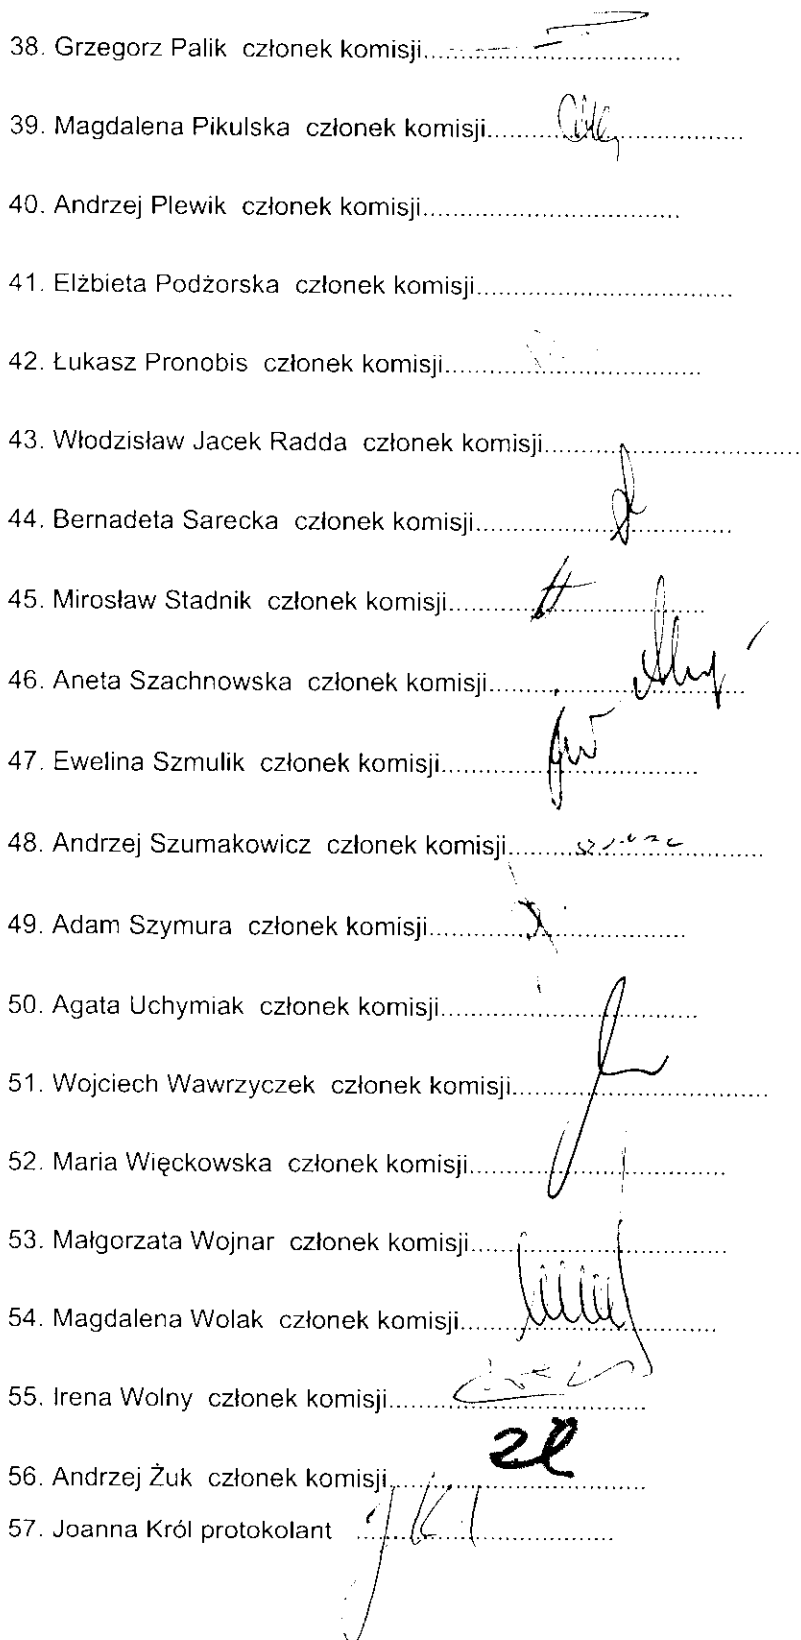 38. Grzegorz Palik członek komisji..............................
39. Magdalena Pikulska członek komisji..............................
40. Andrzej Plewik członek komisji..............................
41. Elżbieta Podżorska członek komisji..............................
42. Łukasz Pronobis członek komisji..............................
43. Włodzisław Jacek Radda członek komisji..............................
44. Bernadeta Sarecka członek komisji..............................
45. Mirosław Stadnik członek komisji..............................
46. Aneta Szachnowska członek komisji..............................
47. Ewelina Szmulik członek komisji..............................
48. Andrzej Szumakowicz członek komisji..............................
49. Adam Szymura członek komisji..............................
50. Agata Uchymiak członek komisji..............................
51. Wojciech Wawrzyczek członek komisji..............................
52. Maria Więckowska członek komisji..............................
53. Małgorzata Wojnar członek komisji..............................
54. Magdalena Wolak członek komisji..............................
55. Irena Wolny członek komisji..............................
56. Andrzej Żuk członek komisji..............................
57. Joanna Król protokolant ..............................